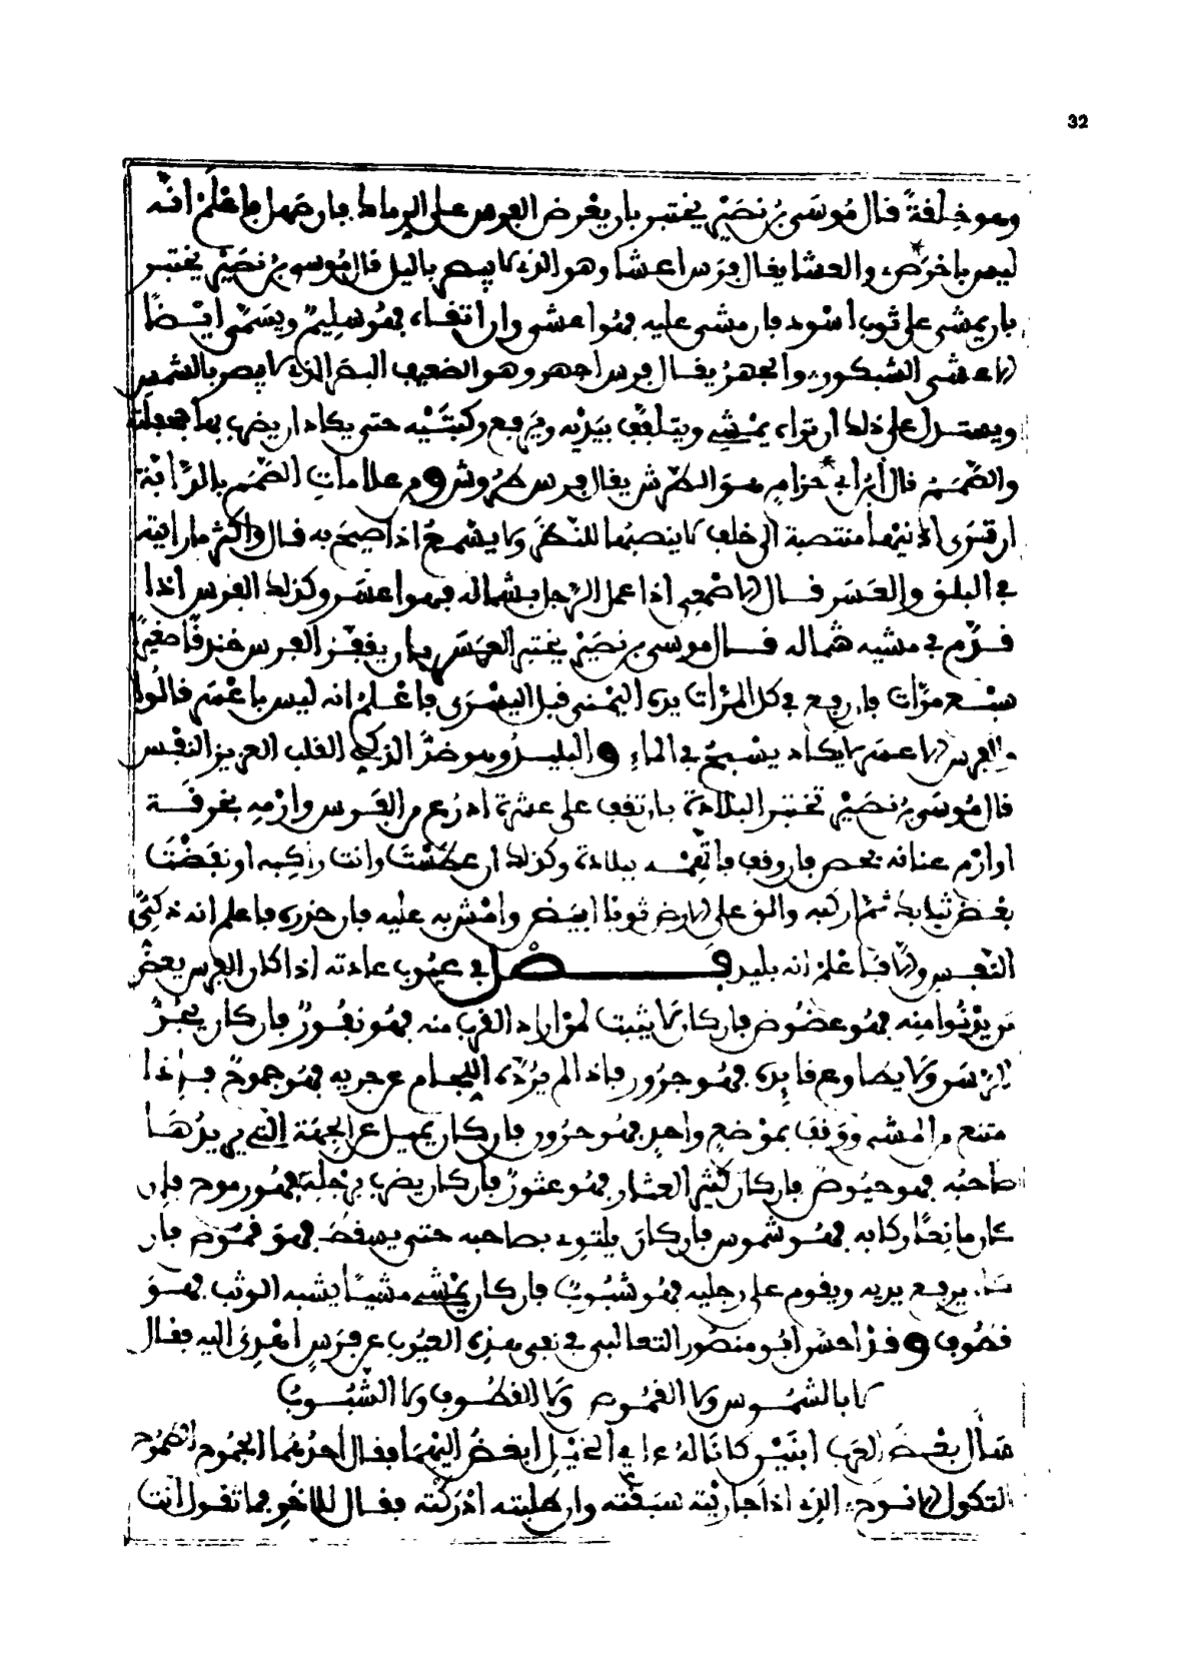 32
وهو خلفةً قال مُوسَى بن نصَيْر يختبر بان يعْرض الفرس على الرماك فان صهل فاعْلَمْ انّه
ليس باخرَص، والعشا يقال فرس اعشا وهو الذي لا يبصر باليل قال مُوسى بن نصَيْر يختبر
بان يمشى على ثوب اسْود فان مشى عليه فهُو اعشى وان اتقاه فهُو سليمٌ ويسَمّى ايْضًا
الاعشى الشبكور، والجهرُ يقال فرس اجهر وهو الضعيف البصَر الذي لا يبصر بالشمس
ويستدل على ذلك ان تراه يمْشي ويتلقّف بيَدْيه ويَرفع ركبتَيْه حتى يكاد ان يضرب بهما جحفلته
والصَّمَمُ قال ابْن أبي حزامٍ هوَ الطّرش يقال فرس طرُوش ومن علامات الصّمَم بالدّابّة
ان ترَى اذنيْها منتصبة الى خلف لا ينصبُها للنظَر ولا يسْمعُ اذا صيحَ به قال واكثر ما رايته
في البلق والعَسَر قال الاصْمعي اذا عمل الرّجل بشماله فهوا عسَر وكذلك الفرس اذا
قدّم في مشيه شماله قال موسى بن نصَيْر يختبر العسَر بان يقفز الفرس خندقًا صغيرًا
سبْع مرّات فان رفع في كل المرّات يده اليُمْنى قبل اليسْرَى فاعْلم انه ليس باعْسَر قالُوا
والفرس الاعسَر لا يكاد يسْبحُ في الماء والبليدُ وهو ضدّ الذكي القلب العزيز النفْس
قال مُوسَى بن نصَيْر تختبر البلادة بان تقف على عشرة اذرُع من الفَرس وارْمه بخرقَة
او ارْم عنانه بحصى فان وقف فاتّهمْه ببلادة وكذلك ان عطسْتَ وانت راكبه او نفضْتَ
بعْض ثيابك ثمّ اركبه والق على الارض ثوبًا ابيَض وامْش به عليه فان حذره فاعلم انه ذكيّ
النفْس والا فاعْلمْ انه بليد فَصْل في عيُوب عادته اذا كان الفرس يعضّ
من يدْنُوا منه فهُو عضُوض فان كان لا يثبت لمن اراد القرب منه فهُو نفُورٌ فان كان يجُرّ
الرسَن ولا يطاوع قايده فهُو جرُور فاذا لم يَرُدّه اللجام عن جريه فهُو جموحٌ فاذا
متنع من المشي ووَقف بموْضعٍ واحدٍ فهُو حرُون فان كان يميل عن الجهَة التي يريدُهَا
صَاحبُه فهو حيُوص فان كان كثير العثار فهُو عثورٌ فان كان يضرب برجله فهُو رموح فان
كان مانعًا ركابه فهُو شموس فان كان يلتوي بصاحبه حتى يسقط فهو قمُوص فان
كان يرفع يديه ويقوم على رجليه فهُو شبُوبٌ فان كان يمْشي مشيًا يشبه الوثب فهوَ
قطُوف وقد احسَن ابُو منصُور الثعالبي في نفي هذه العيُوب عن فرَسٍ اهْديَ اليه فقال
لا بالشمُوس ولا القمُوص ولا القطُوف ولا الشبُوب
سأل بعْضُ العرب ابنيْن كانا لهُ عن اي الخيْل ابغضُ اليهمَا فقال احدُهما الجمُوح الطمُوح
التكول الانوح، الذي اذا جاريْته سبَقْته وان طلبته ادْركته فقال للاخر فما تقول انت